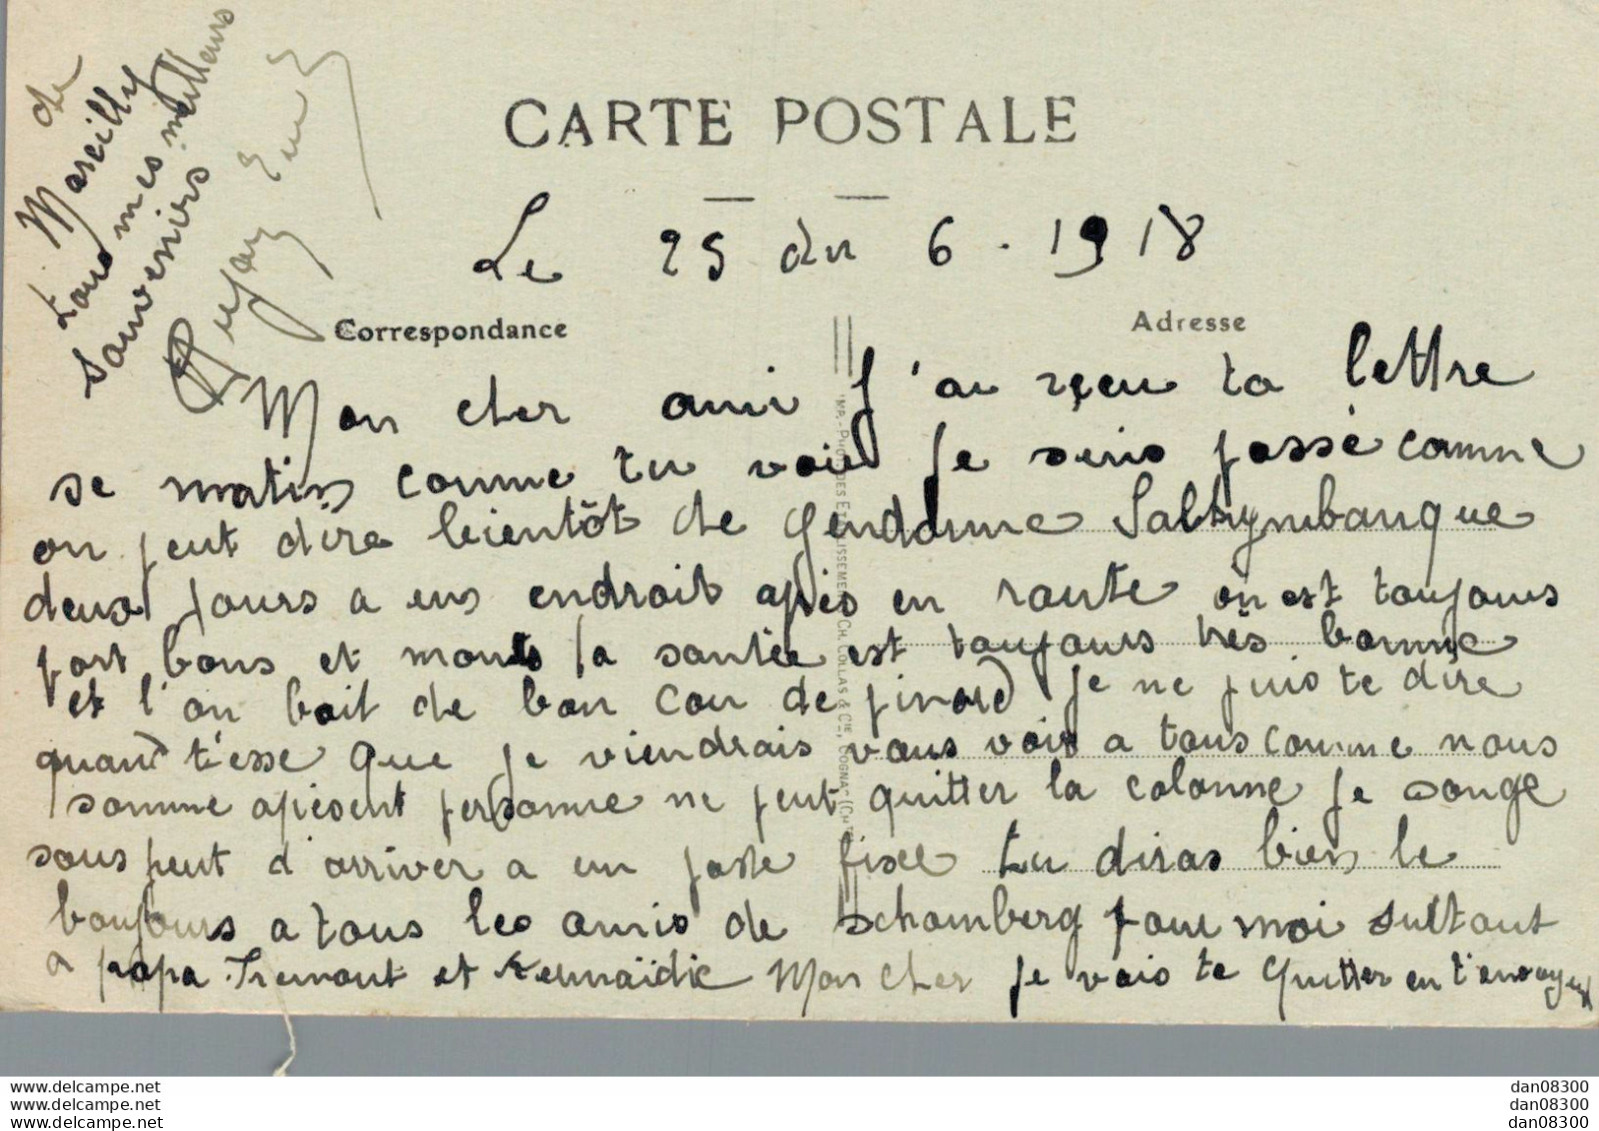 CARTE POSTALE
Le 25 du 6 - 1918
Correspondance
Adresse
Mon cher ami J'ai reçeu ta lettre
se matin comme tu vois je suis passé comme
on peut dire bientôt de gendarme Saltymbanque
deux jours a un endroit après en route on est toujours
fort bons et mont la santée est toujours très bonne
et l'on boit de bon cou de pinard je ne puis te dire
quand t'esse que je viendrais vous voir a tous comme nous
somme apresent personne ne peut quitter la colonne je songe
sous peut d'arriver a un poste fixe tu diras bien le
boujours a tous les amis de Schomberg pour moi surtout
a papa Tremont et Mon cher je vais te quitter en t'envoyent
de
Marcilly
tous mes meilleurs
souvenirs
IMP.-PHOT. DES ETABLISSEMENTS CH. COLLAS & Cie, COGNAC (Chte)
www.delcampe.net
www.delcampe.net
www.delcampe.net
dan08300
dan08300
dan08300